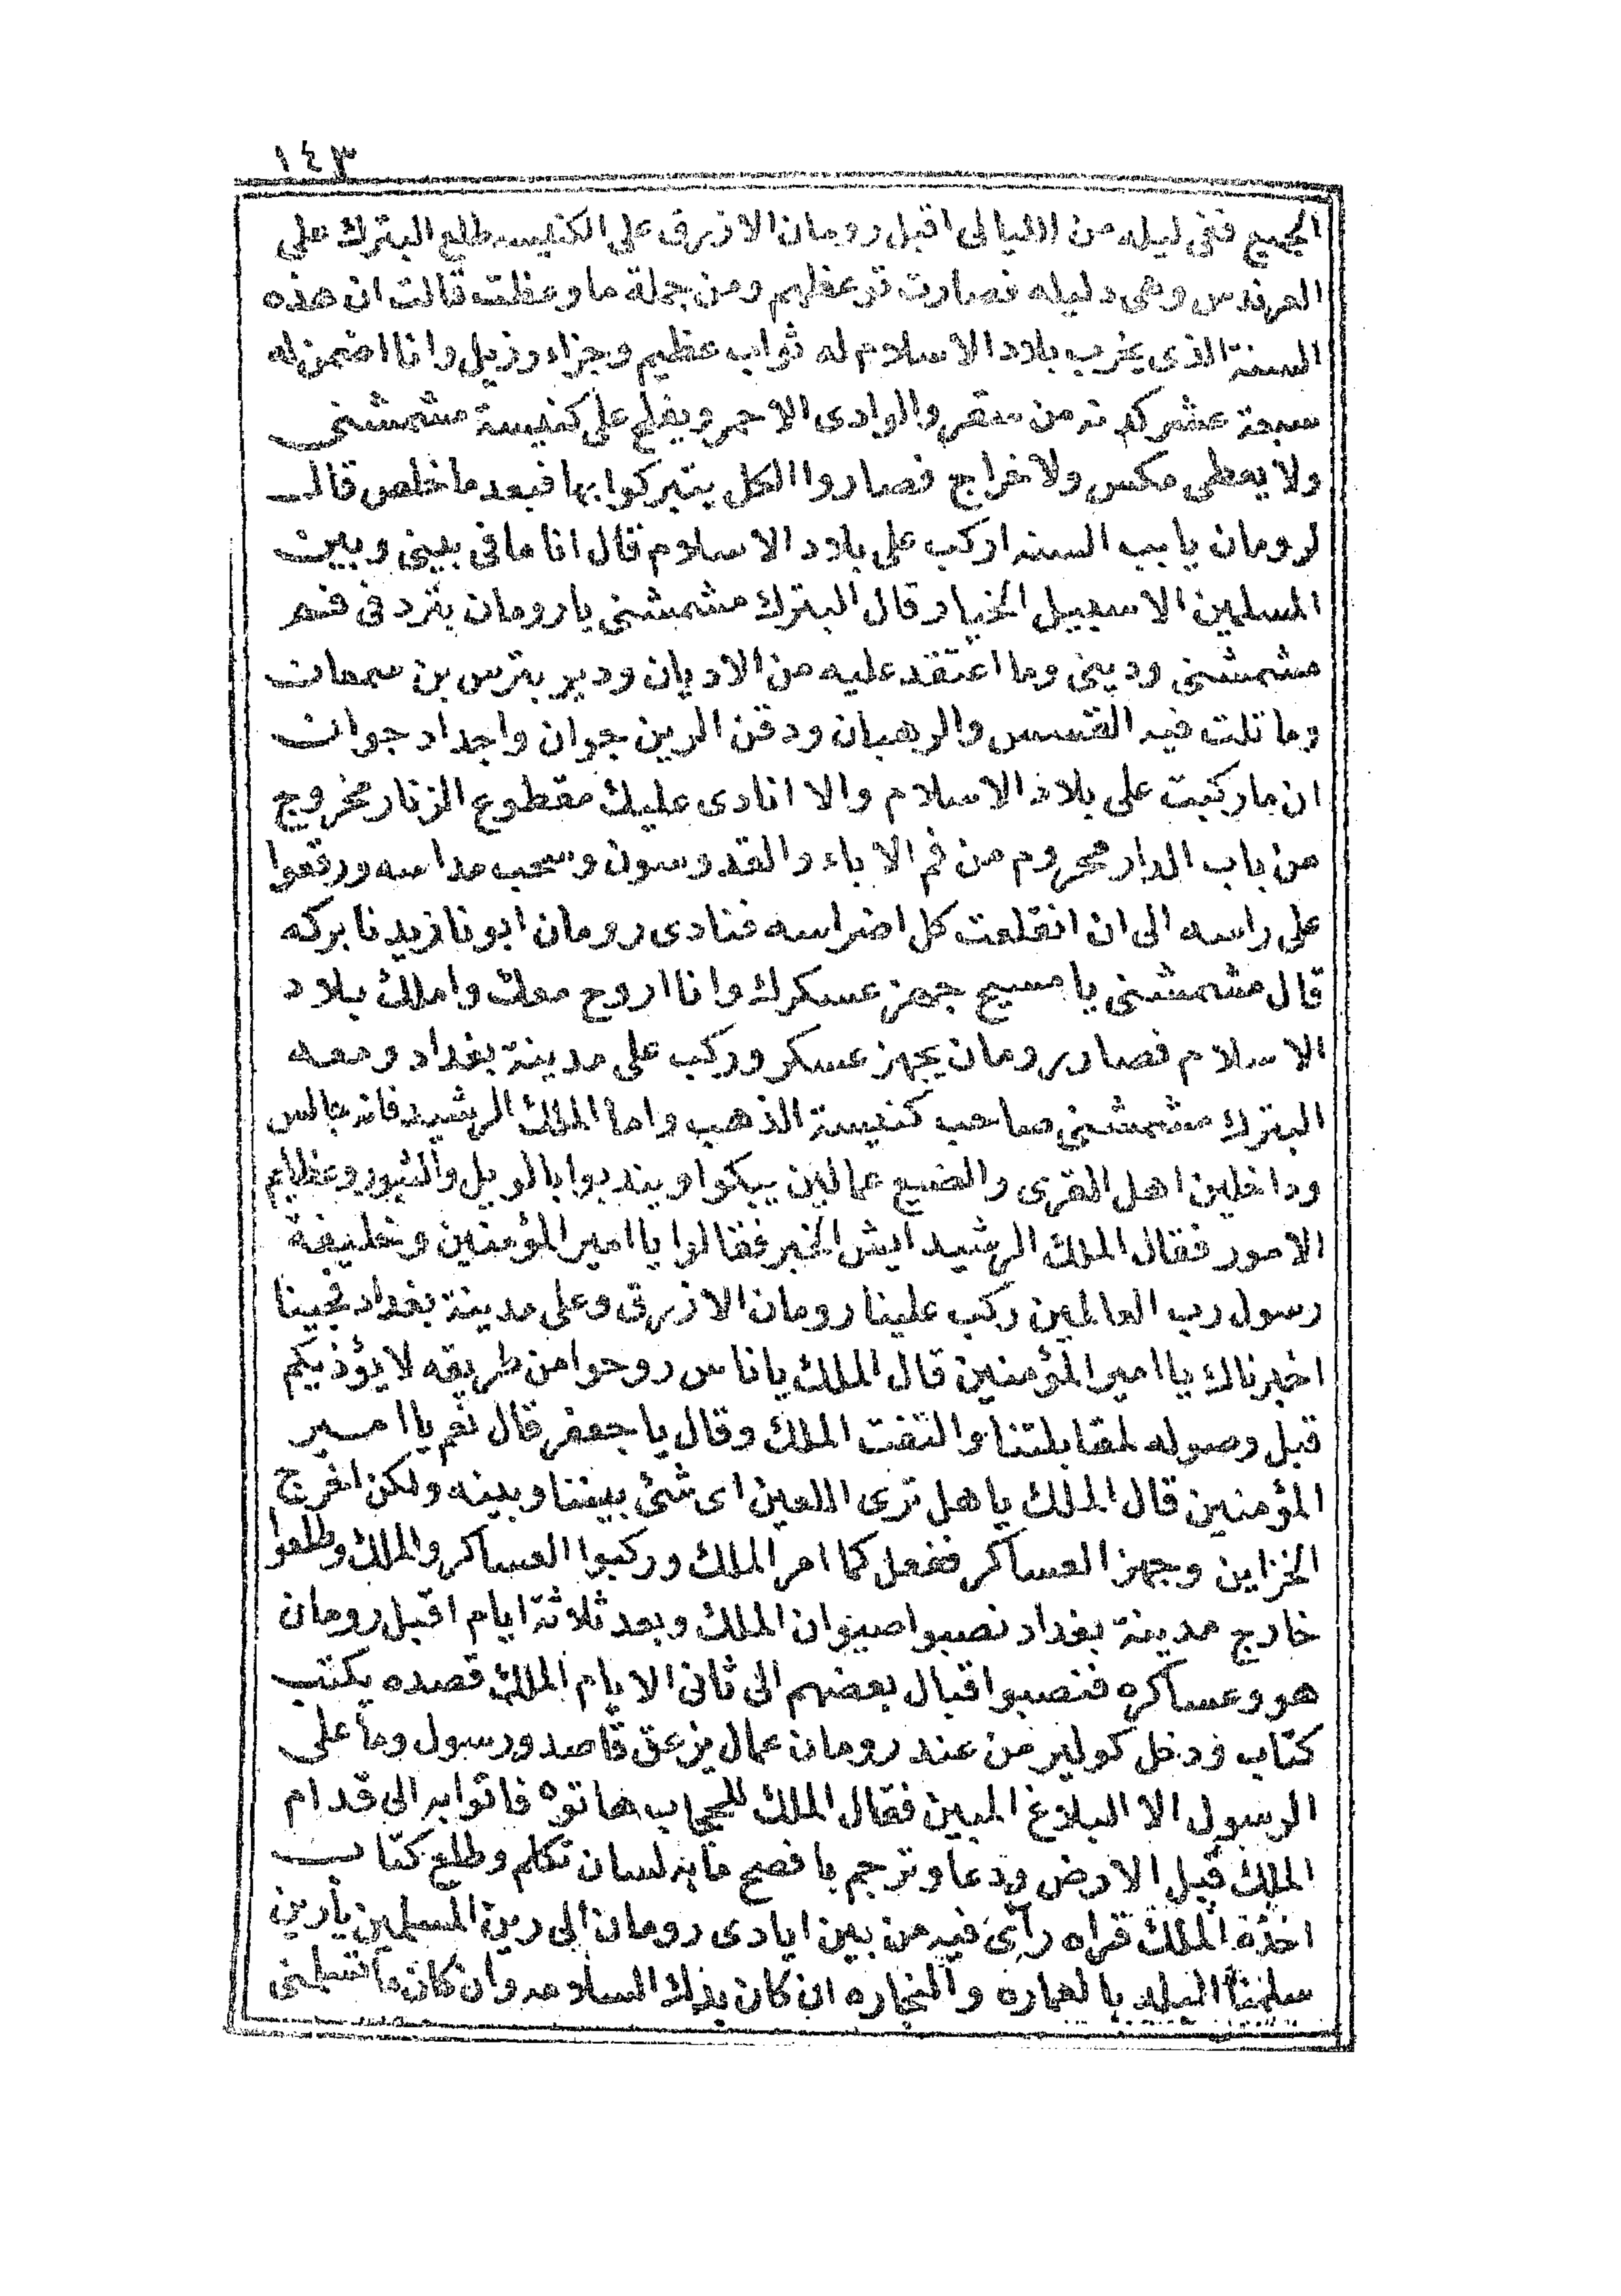 ١٤٣
الجميع ففى ليله من الليالى اقبل رومان الازرق على الكنيسه طلع البترك على
العرندس وهى دليله فصارت توعظهم ومن جملة ما وعظت قالت ان هذه
السنة الذى يخرب بلاد الاسلام له ثواب عظيم وجزاء رزيل وانا اضمن له
سبعة عشر كرته من سقر والوادى الاحمر ويفلح على كنيسة مشمشنى
ولا يعطى مكس ولا خراج فصاروا الكل يتبركوا بها فبعد ما خلص قال
لرومان يا بب السنه اركب على بلاد الاسلام قال انا ما فى بينى وبين
المسلمين الا سبيل الخيار قال البترك مشمشنى يا رومان يثرد فى فنم
مشمشنى ودينى وما اعتقد عليه من الاديان ودير بترس بن سمعان
وما تلت فيه القسس والرهبان ودقن الرين جوان واجداد جوان
ان ما ركبت على بلاد الاسلام والا انادى عليك مقطوع الزنار مخروج
من باب الدار محروم من فم الاباء والقدوسون وسحب مداسه ورقعوا
على راسه الى ان انقلعت كل اضراسه فنادى رومان ابونا زيدنا بركه
قال مشمشنى يا مسيح جهز عسكرك وانا اروح معك واملك بلاد
الاسلام فصار رومان يجهز عسكر وركب على مدينة بغداد ومعه
البترك مشمشنى صاحب كنيسة الذهب واما الملك الرشيد فانه جالس
وداخلين اهل القرى والضيع عمالين يبكوا ويندبوا بالويل والثبور وعظايم
الامور فقال الملك الرشيد ايش الخبر فقالوا يا امير المؤمنين وخليفة
رسول رب العالمين ركب علينا رومان الازرق وعلى مدينة بغداد فجينا
اخبرناك يا امير المؤمنين قال الملك يا ناس روحوا من طريقه لا يؤذيكم
قبل وصوله لمقابلتنا والتفت الملك وقال يا جعفر قال نعم يا امير
المؤمنين قال الملك يا هل ترى اللعين اى شئ بيننا وبينه ولكن اخرج
الخزاين وجهز العساكر ففعل كما امر الملك وركبوا العساكر والملك وطلعوا
خارج مدينة بغداد نصبوا صيوان الملك وبعد ثلاثة ايام اقبل رومان
هو وعساكره فنصبوا قبال بعضهم الى ثانى الايام الملك قصده يكتب
كتاب ودخل كولير من عند رومان عمال يزعق قاصد ورسول وما على
الرسول الا البلاغ المبين فقال الملك للحجاب هاتوه فاتوا به الى قدام
الملك قبل الارض ودعا وترجم بافصح ما به لسان تكلم وطلع كتاب
اخذه الملك قراه رأى فيه من بين ايادى رومان الى رين المسلمين يا رين
سلمنا البلد بالعماره والنجاره ان كان بدك السلامه وان كان ما تسلمنى